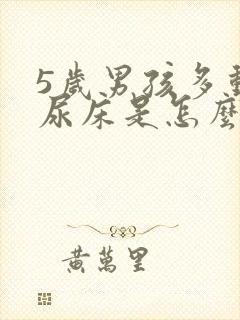 5歲男孩多動
尿床是怎麼
黃萬里